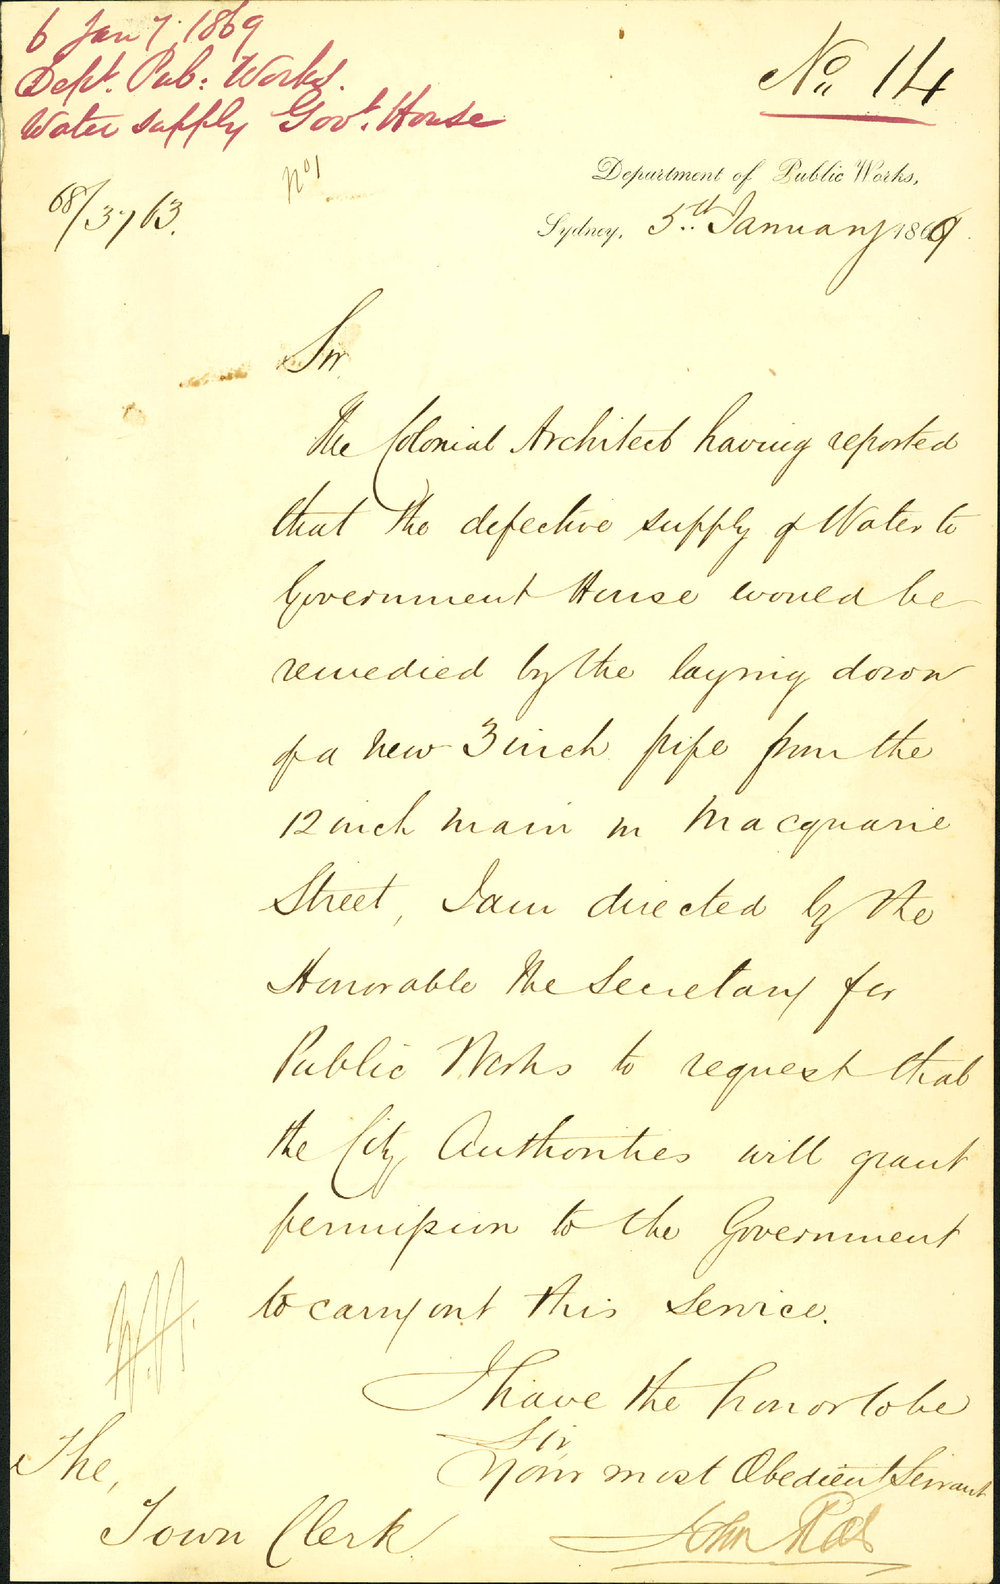 6 Jany. 1869
Dept. Pub: Works.
Water supply Govt. House
No 14
No 1
68/3763.
Department of Public Works,
Sydney, 5th January 1869
Sir
The Colonial Architect having reported
that the defective supply of Water to
Government House would be
remedied by the laying down
of a new 3 inch pipe from the
12 inch main in Macquarie
Street, I am directed by the
Honorable the Secretary for
Public Works to request that
the City Authorities will grant
permission to the Government
to carry out this service.
I have the honor to be
Sir,
Your most Obedient Servant
John Rae
The,
Town Clerk